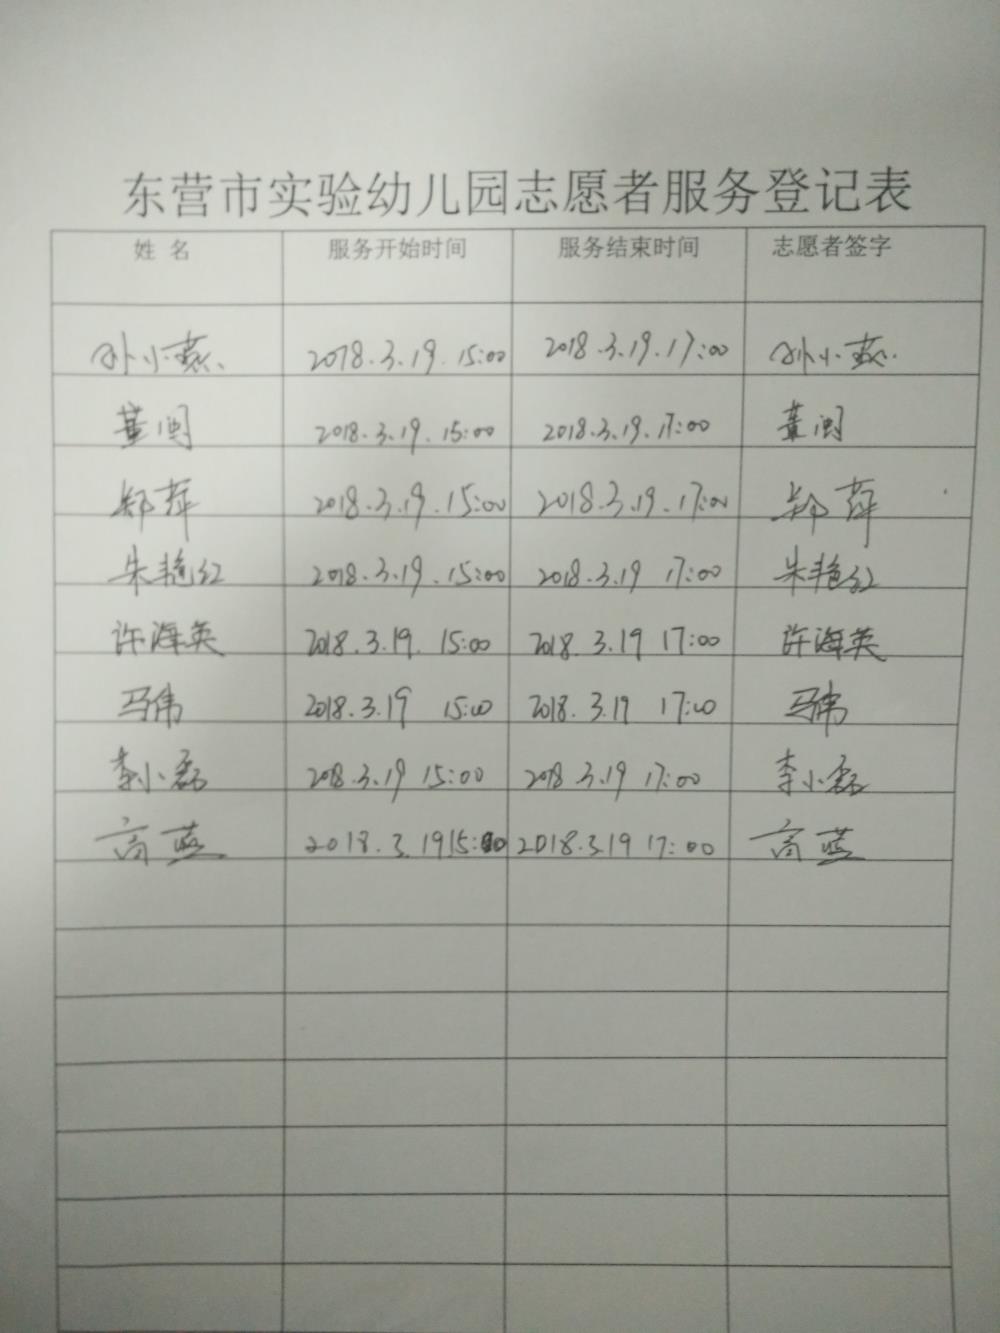 东营市实验幼儿园志愿者服务登记表
姓 名 服务开始时间 服务结束时间 志愿者签字
孙小燕 2018.3.19.15:00 2018.3.19.17:00 孙小燕
董闽 2018.3.19.15:00 2018.3.19.17:00 董闽
郑萍 2018.3.19.15:00 2018.3.19.17:00 郑萍
朱艳红 2018.3.19.15:00 2018.3.19 17:00 朱艳红
许海英 2018.3.19. 15:00 2018.3.19 17:00 许海英
马伟 2018.3.19 15:00 2018.3.19 17:00 马伟
李小磊 2018.3.19 15:00 2018.3.19 17:00 李小磊
高蓝 2018.3.19 15:00 2018.3.19 17:00 高蓝